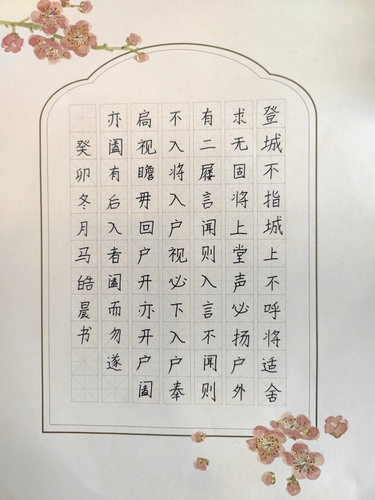 登城不指城上不呼将适舍
求无固将上堂声必扬户外
有二屦言闻则入言不闻则
不入将入户视必下入户奉
扃视瞻毋回户开亦开户阖
亦阖有后入者阖而勿遂
癸卯冬月马皓晨书